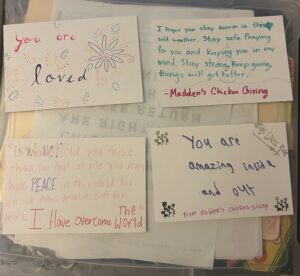 You are
loved
I hope you stay warm in this
cold weather. Stay safe. Praying
for you and keeping you in my
mind. Stay strong. Keep going,
things will get better.
-Madden's Chicken Giving
told you these
things, so that in me you may
have PEACE in this world you
will have trouble But take
heart, I Have overcome The World
You are
amazing inside
and out
From Madder's Chicken-Giving